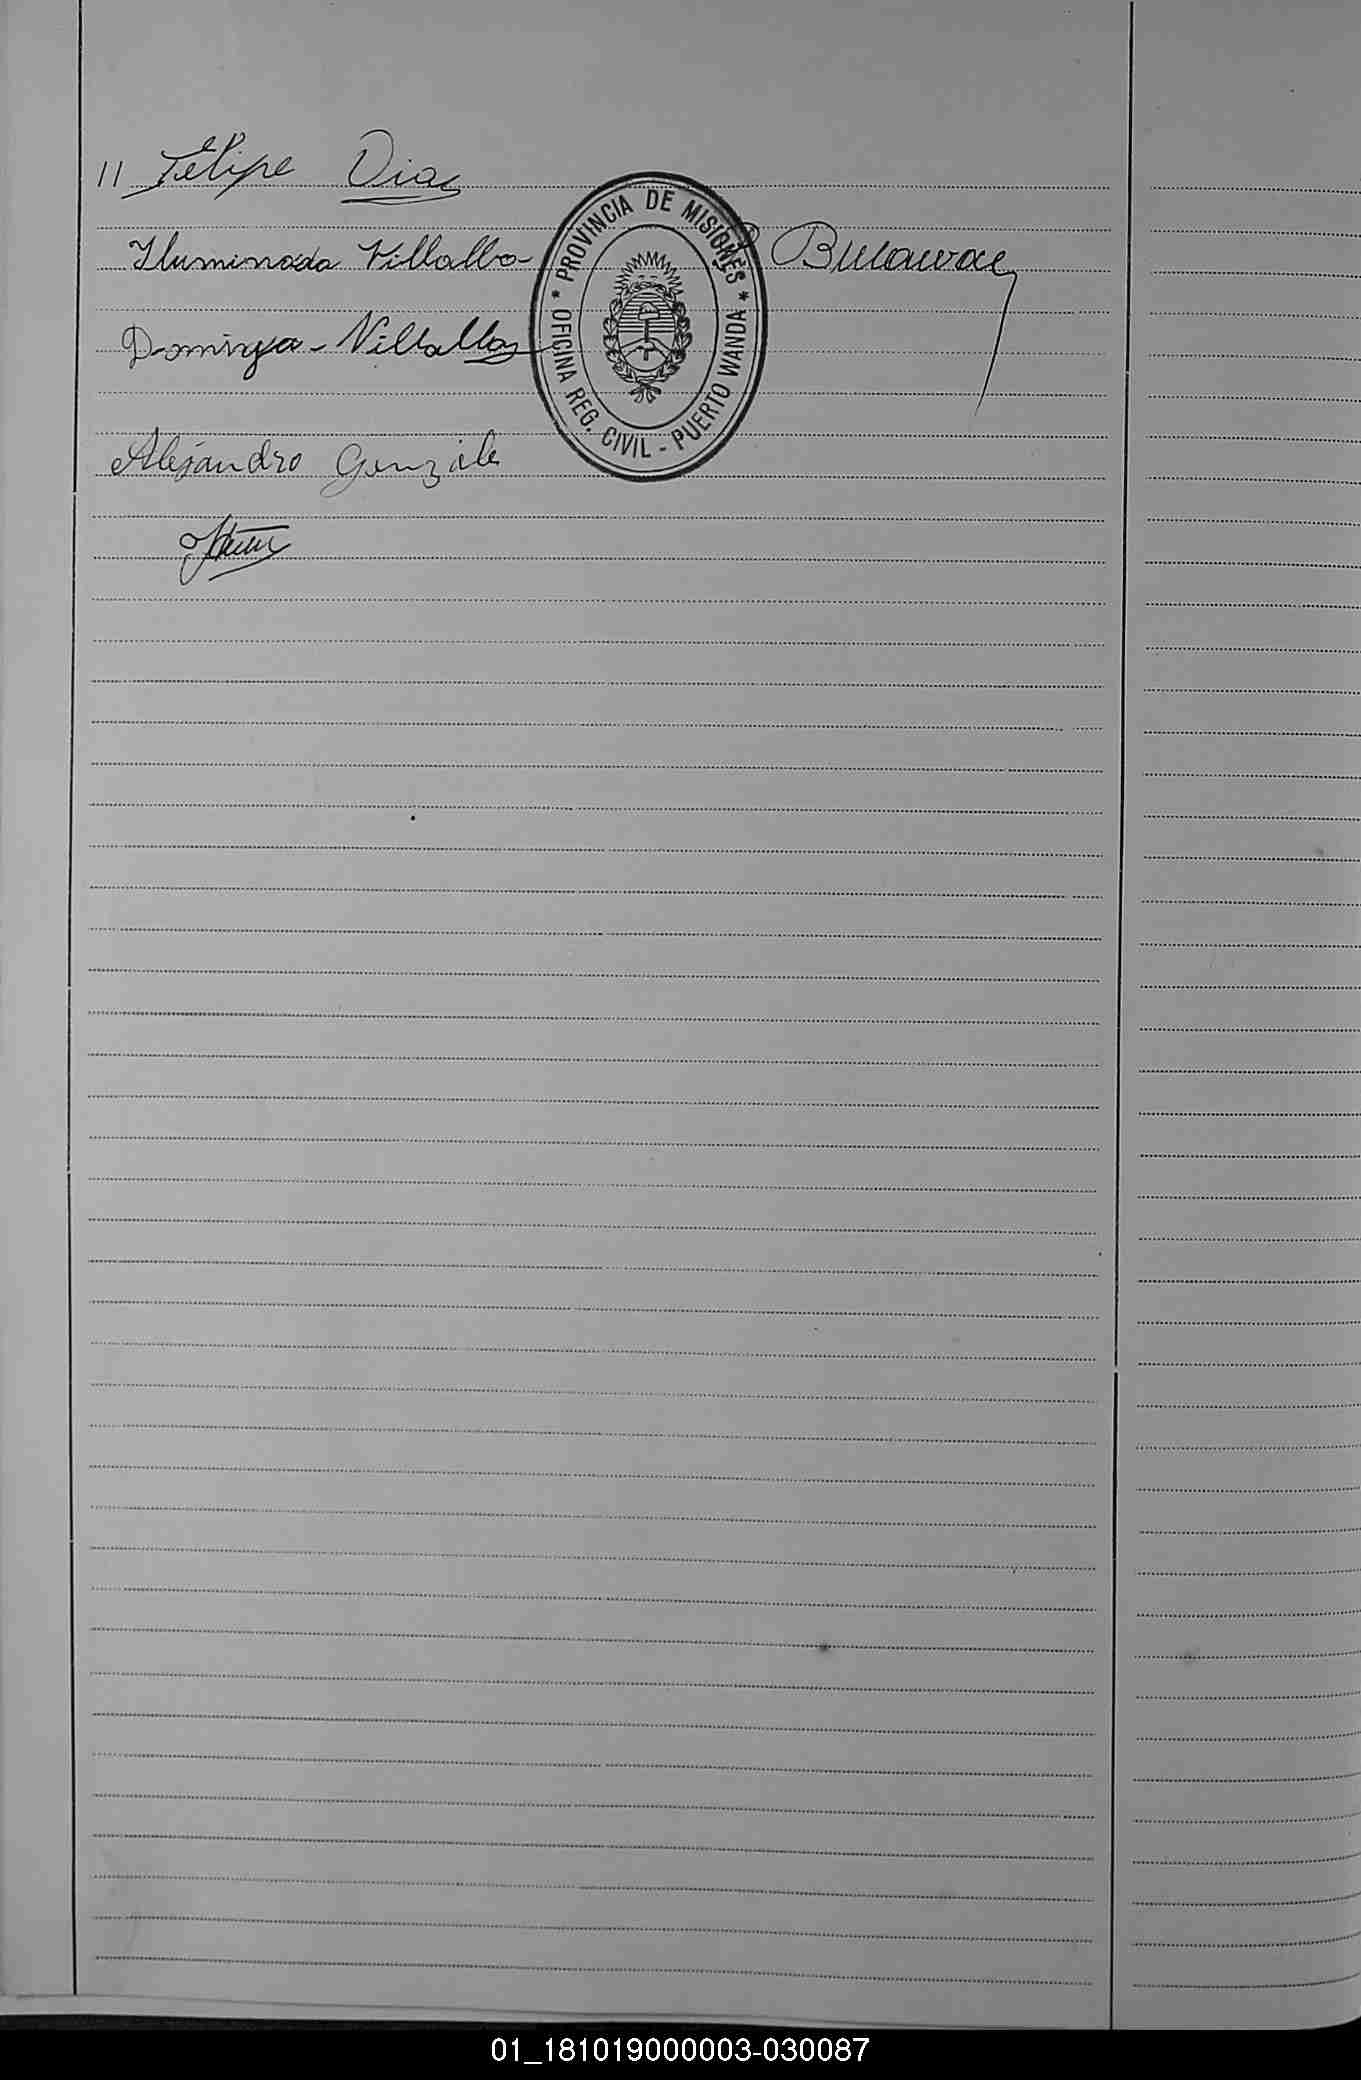 11 Felipe Diaz
Iluminada Villalba-
PROVINCIA DE MISIONES
* OFICINA REG. CIVIL - PUERTO WANDA *
Dominga - Villalba
Alejandro Gonzále
01_181019000003-030087